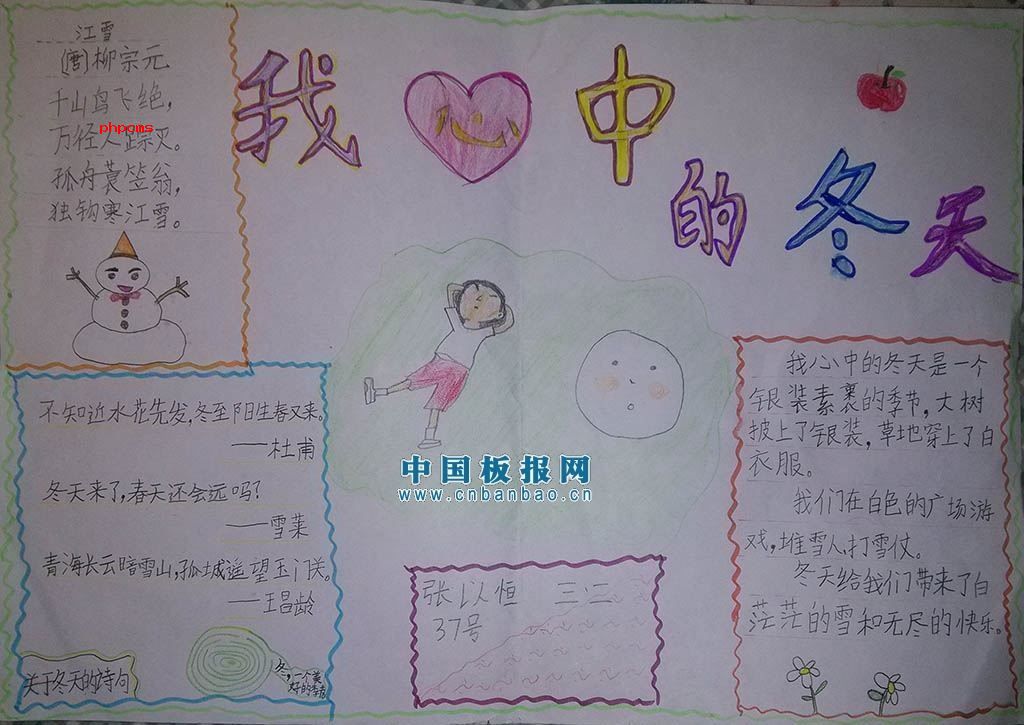 江雪
(唐)柳宗元
千山鸟飞绝，
万径人踪灭。
phpcms
孤舟蓑笠翁，
独钓寒江雪。
我心中
的冬天
不知近水花先发,冬至阳生春又来。
——杜甫
冬天来了,春天还会远吗?
——雪莱
青海长云暗雪山,孤城遥望玉门关。
——王昌龄
关于冬天的诗句
冬,一个美
好的季节
中国板报网
www.cnbanbao.cn
张以恒 三·二
37号
我心中的冬天是一个
银装素裹的季节,大树
披上了银装,草地穿上了白
衣服。
我们在白色的广场游
戏,堆雪人,打雪仗。
冬天给我们带来了白
茫茫的雪和无尽的快乐。